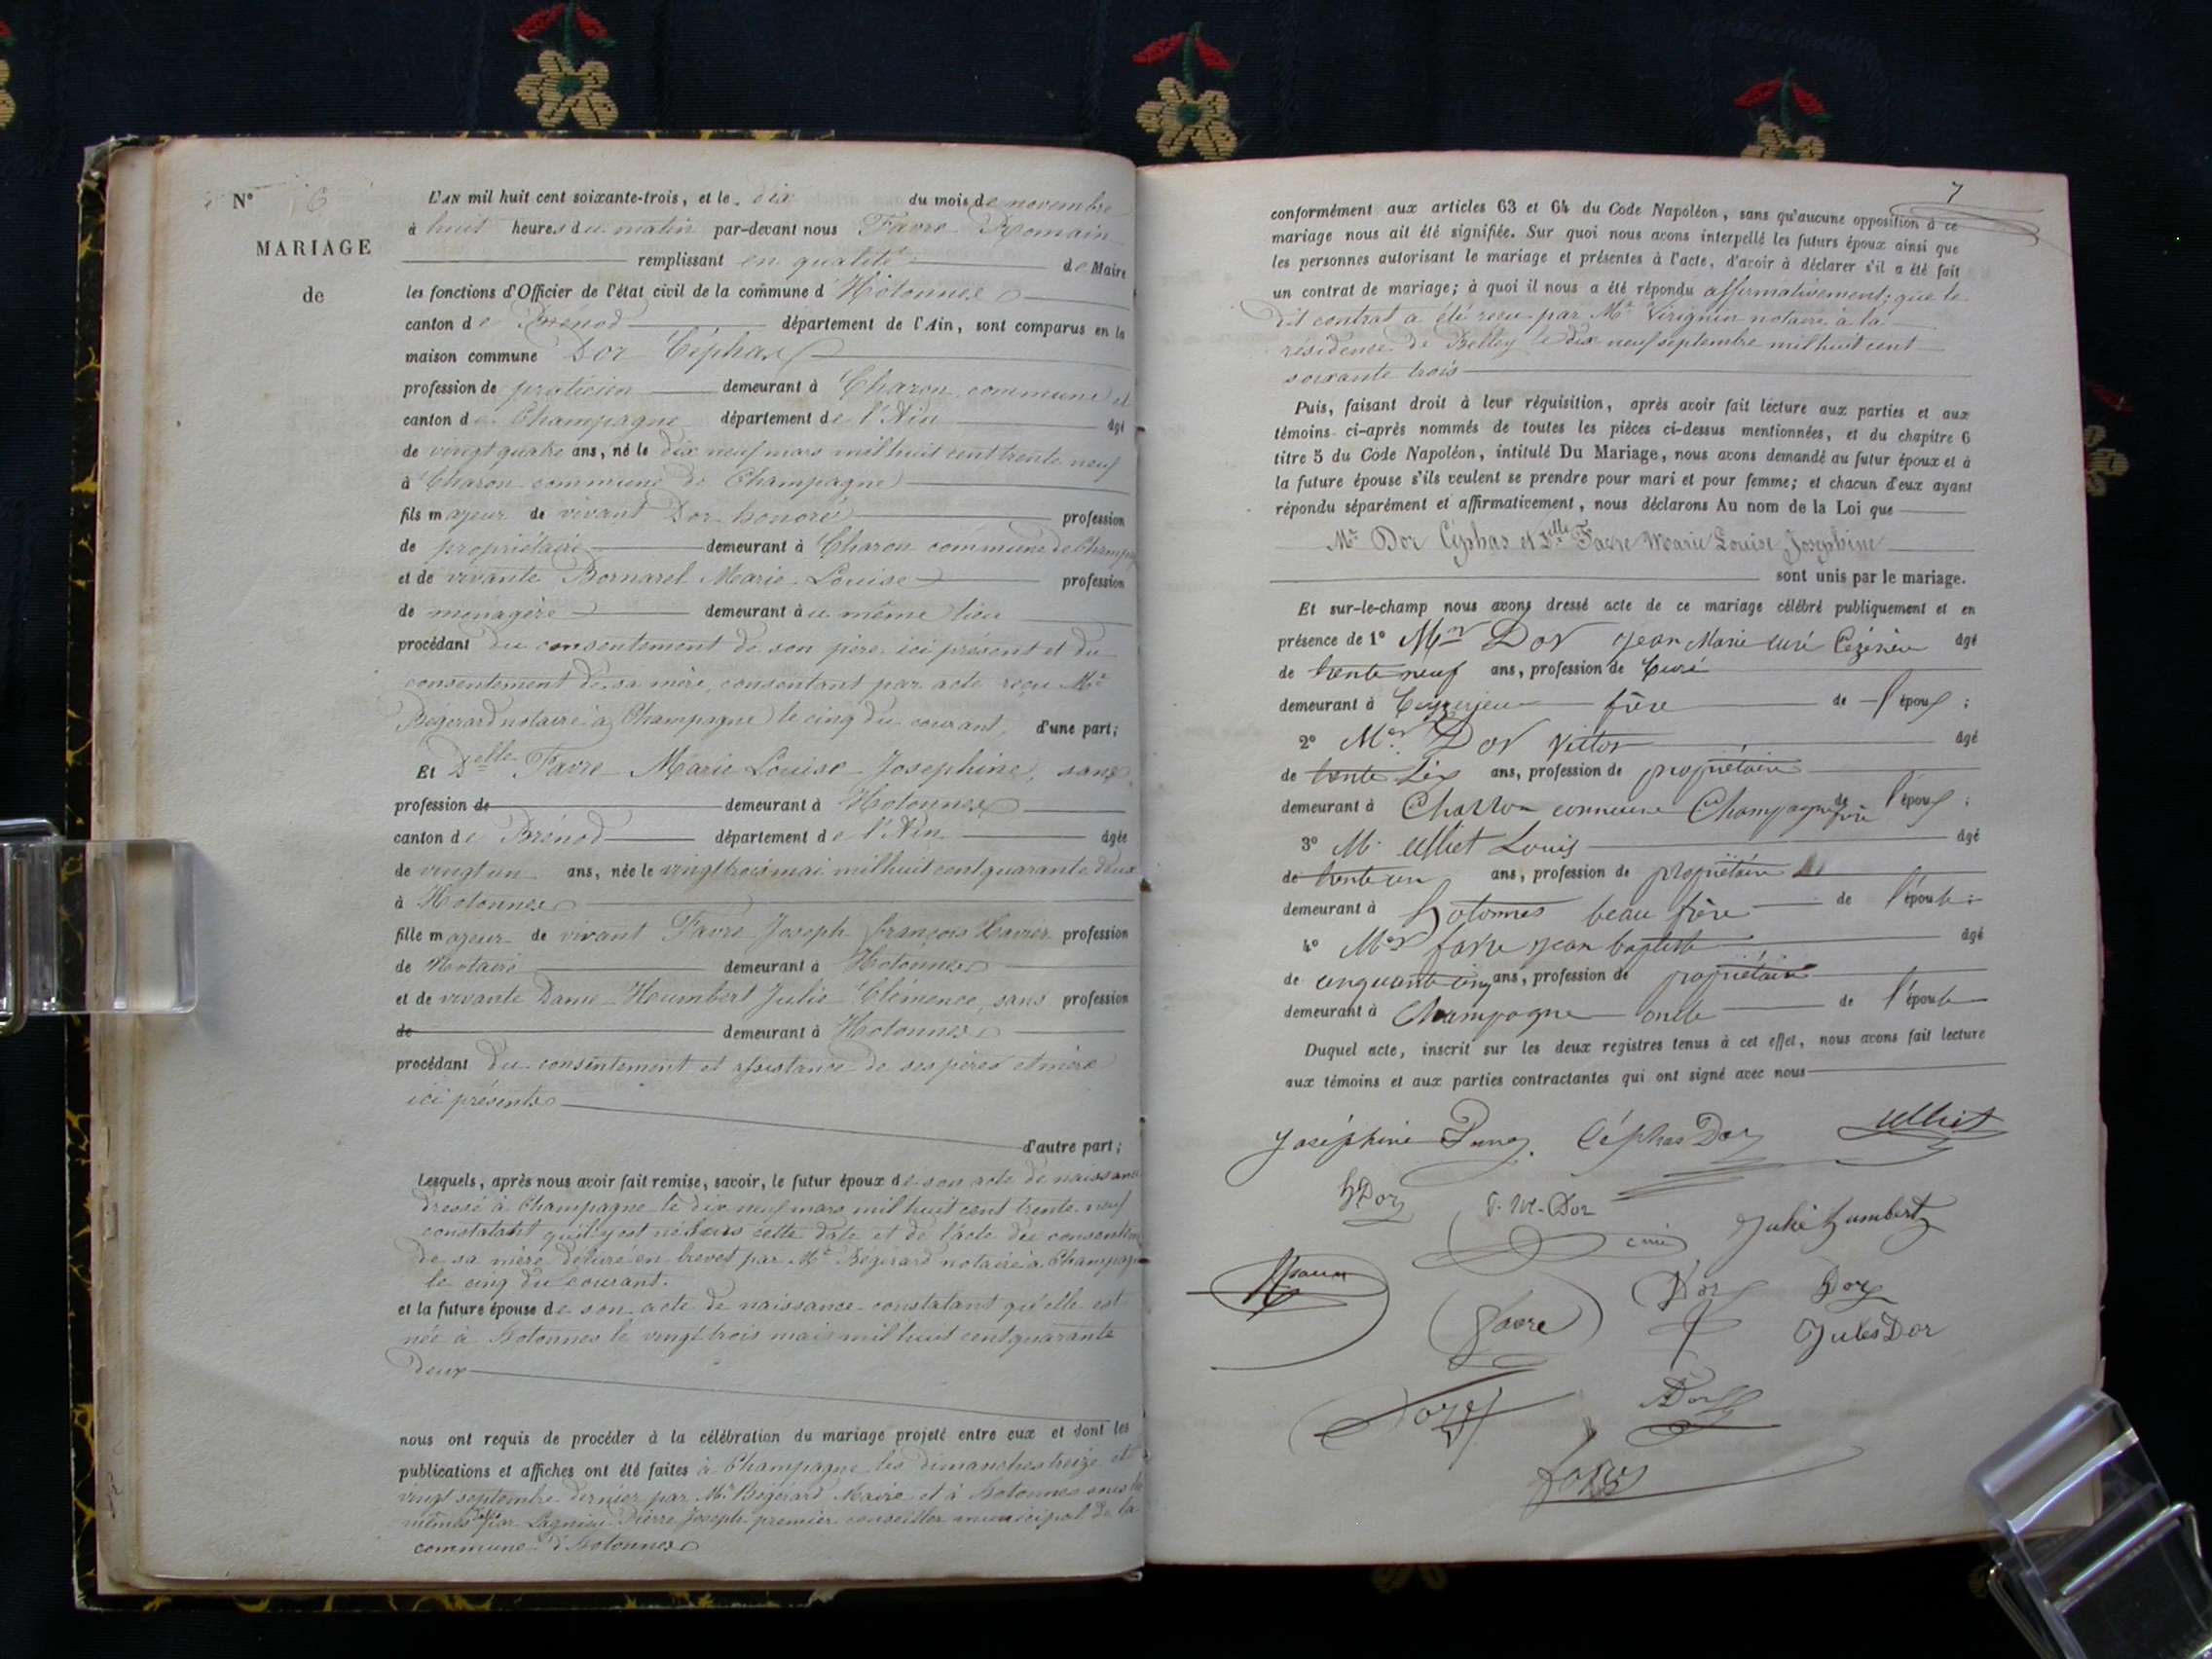 N° 6
MARIAGE
de
L'AN mil huit cent soixante-trois, et le dix du mois de novembre
à huit heures du matin par-devant nous Favre Romain
remplissant en qualité de Maire
les fonctions d'Officier de l'état civil de la commune d'Hotonnes
canton de Brénod département de l'Ain, sont comparus en la
maison commune Dor Céphas
profession de praticien demeurant à Charon commune et
canton de Champagne département de l'Ain âgé
de vingt quatre ans, né le dix neuf mars mil huit cent trente neuf
à Charon commune de Champagne
fils majeur de vivant Dor honoré profession
de propriétaire demeurant à Charon commune de Champag
et de vivante Bornarel Marie Louise profession
de ménagère demeurant à u même lieu
procédant du consentement de son père ici présent et du
consentement de sa mère, consentant par acte reçu Me
Bégérard notaire à Champagne le cinq du courant, d'une part;
Et Delle Favre Marie Louise Josephine, sans
profession de demeurant à Hotonnes
canton de Brénod département de l'Ain âgée
de vingt un ans, née le vingt trois mai mil huit cent quarante deux
à Hotonnes
fille majeur de vivant Favre Joseph françois Xavier profession
de Notaire demeurant à Hotonnes
et de vivante Dame Humbert Julie Clémence, sans profession
de demeurant à Hotonnes
procédant du consentement et assistance de ses pères et mère
ici présents
d'autre part;
Lesquels, après nous avoir fait remise, savoir, le futur époux de son acte de naissance
dressé à Champagne le dix neuf mars mil huit cent trente neuf
constatant qu'il y est né sous cette date et de l'acte du consentem
de sa mère délivré en brevet par Me Bégérard notaire à Champag
le cinq du courant.
et la future épouse de son acte de naissance constatant qu'elle est
née à Hotonnes le vingt trois mai mil huit cent quarante
deux
nous ont requis de procéder à la célébration du mariage projeté entre eux et dont les
publications et affiches ont été faites à Champagne les dimanches treize et
vingt septembre dernier par Mr Bégérard Maire et à Hotonnes sous les
mêmes dates par Lagnieu Pierre Joseph premier conseiller municipal de la
commune d'Hotonnes
7
conformément aux articles 63 et 64 du Code Napoléon, sans qu'aucune opposition à ce
mariage nous ait été signifiée. Sur quoi nous avons interpellé les futurs époux ainsi que
les personnes autorisant le mariage et présentes à l'acte, d'avoir à déclarer s'il a été fait
un contrat de mariage; à quoi il nous a été répondu affirmativement; que le
dit contrat a été reçu par Me Virignin notaire à la
résidence de Belley le dix neuf septembre mil huit cent
soixante trois
Puis, faisant droit à leur réquisition, après avoir fait lecture aux parties et aux
témoins ci-après nommés de toutes les pièces ci-dessus mentionnées, et du chapitre 6
titre 5 du Code Napoléon, intitulé Du Mariage, nous avons demandé au futur époux et à
la future épouse s'ils veulent se prendre pour mari et pour femme; et chacun d'eux ayant
répondu séparément et affirmativement, nous déclarons Au nom de la Loi que
Mr Dor Céphas et Delle Favre Marie Louise Josephine
sont unis par le mariage.
Et sur-le-champ nous avons dressé acte de ce mariage célébré publiquement et en
présence de 1° Mr Dor Jean Marie curé âgé
de trente neuf ans, profession de Curé
demeurant à frère de l'époux;
2° Mr Dor Victor âgé
de trente six ans, profession de propriétaire
demeurant à Charron commune Champagne frère de l'époux;
3° M. Ulliet Louis âgé
de trente un ans, profession de propriétaire
demeurant à hotonnes beau frère de l'épouse;
4° Mr favre jean baptiste âgé
de cinquante cinq ans, profession de propriétaire
demeurant à Champagne oncle de l'épouse
Duquel acte, inscrit sur les deux registres tenus à cet effet, nous avons fait lecture
aux témoins et aux parties contractantes qui ont signé avec nous
Joséphine Céphas Dor Ulliet
Dor J. M. Dor Julie humbert
curé
favre Dor Dor
Jules Dor
Dor